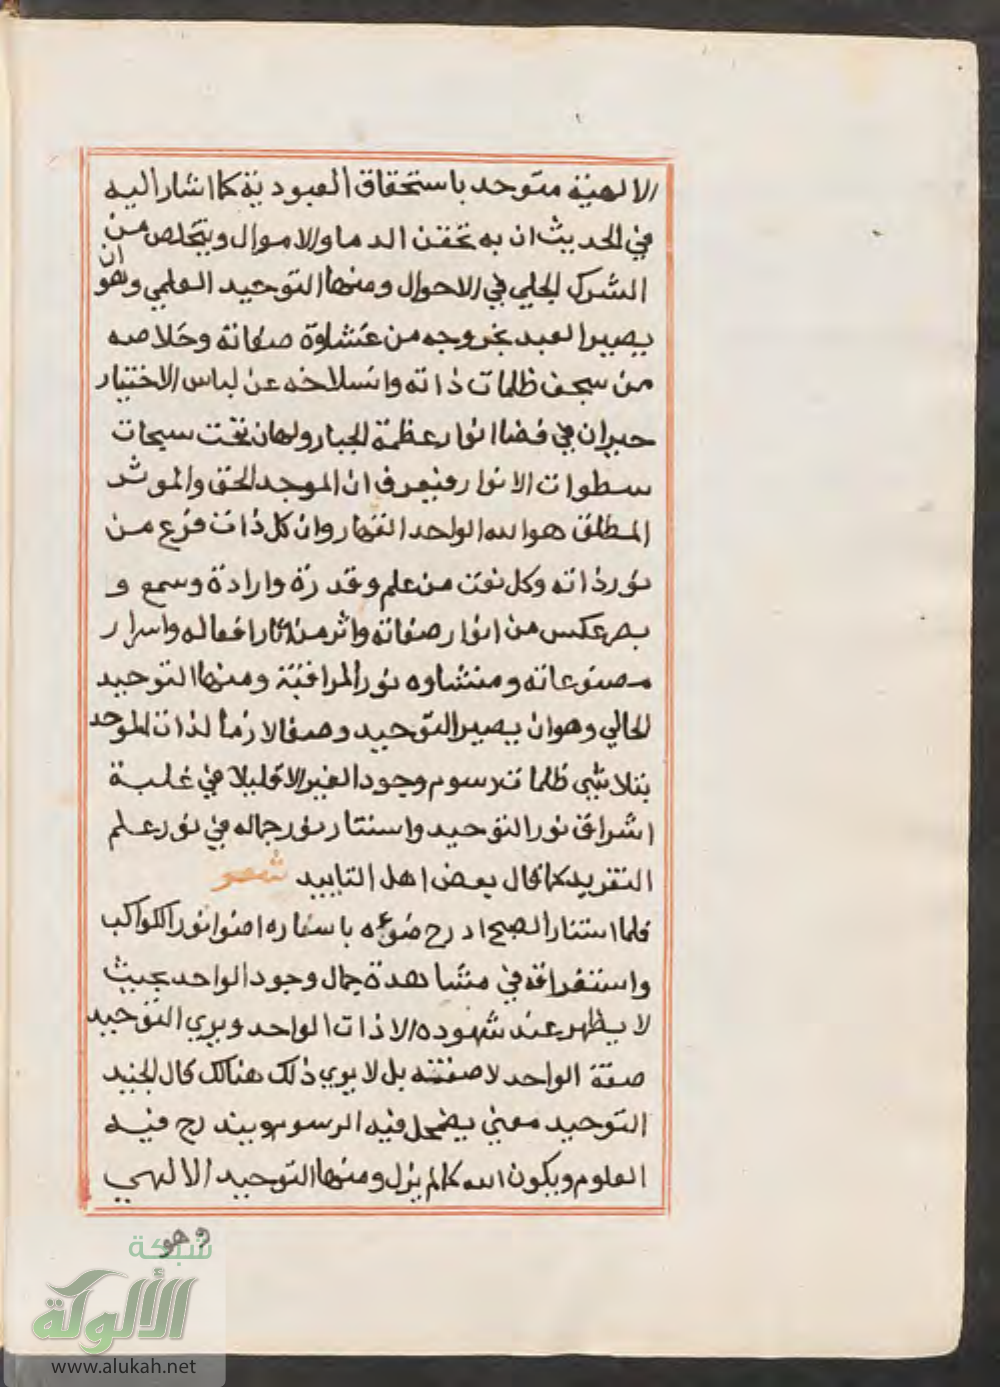 الالهية متوحد باستحقاق العبودية كما اشار اليه
في الحديث ان به تحقن الدما والاموال ويتخلص من
الشرك الجلي في الاحوال ومنها التوحيد العلمي وهو ان
يصير العبد بخروجه من غشاوة صفاته وخلاصه
من سجف ظلمات ذاته وانسلاخه عن لباس الاختيار
حيران في فضا انوار عظمة الجبار ولهان تحت سبحات
سطوات الانوار فيعرف ان الموجد الحق والموثر
المطلق هو الله الواحد القهار وان كل ذات فرع من
نور ذاته وكل نعت من علم وقدرة وارادة وسمع و
بصر عكس من انوار صفاته واثر من اثار افعاله واسرار
مصنوعاته ومنشاوه نور المراقبة ومنها التوحيد
الحالي وهو ان يصير التوحيد وصفا لازما لذات الموحد
بتلاشي ظلمات رسوم وجود الغير الا قليلا في غلبة
اشراق نور التوحيد واستتار نور جماله في نور علم
التفريد كما قال بعض اهل التاييد شعر
فلما استنار الصبح ادرج ضوءه باسفاره اضوا نور الكواكب
واستغراقه في مشاهدة جمال وجود الواحد بحيث
لا يظهر عند شهوده الا ذات الواحد ويري التوحيد
صفة الواحد لا صفته بل لا يري ذلك هنالك قال الجنيد
التوحيد معني يضمحل فيه الرسوم ويندرج فيه
العلوم ويكون الله كما لم يزل ومنها التوحيد الالهي
وهو
شبكة
الألوكة
www.alukah.net